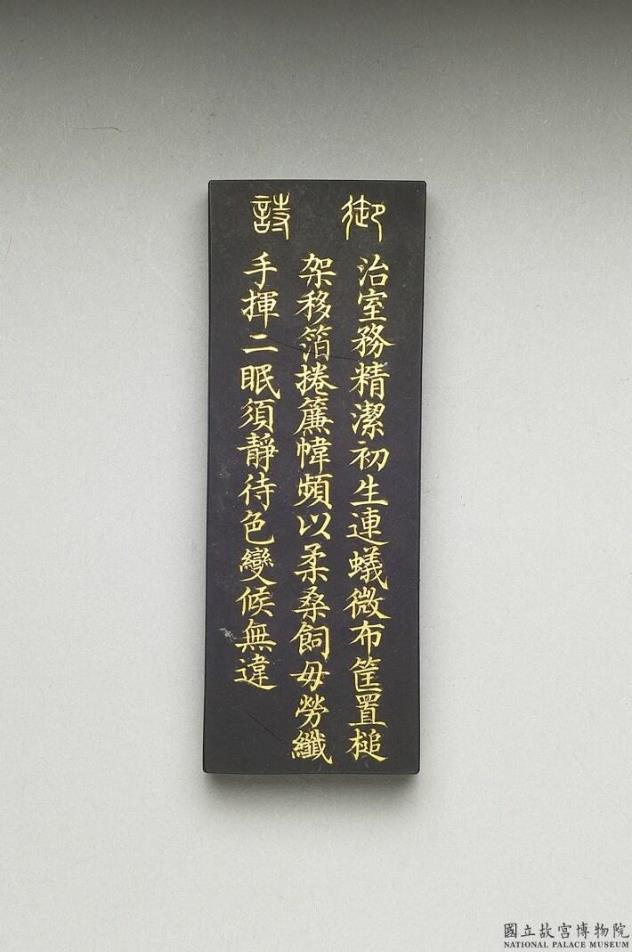 御詩
治室務精潔初生連蟻微布筐置槌
架移箔捲簾幃頻以柔桑飼毋勞纖
手揮二眠須靜待色變候無違
國立故宮博物院
NATIONAL PALACE MUSEUM